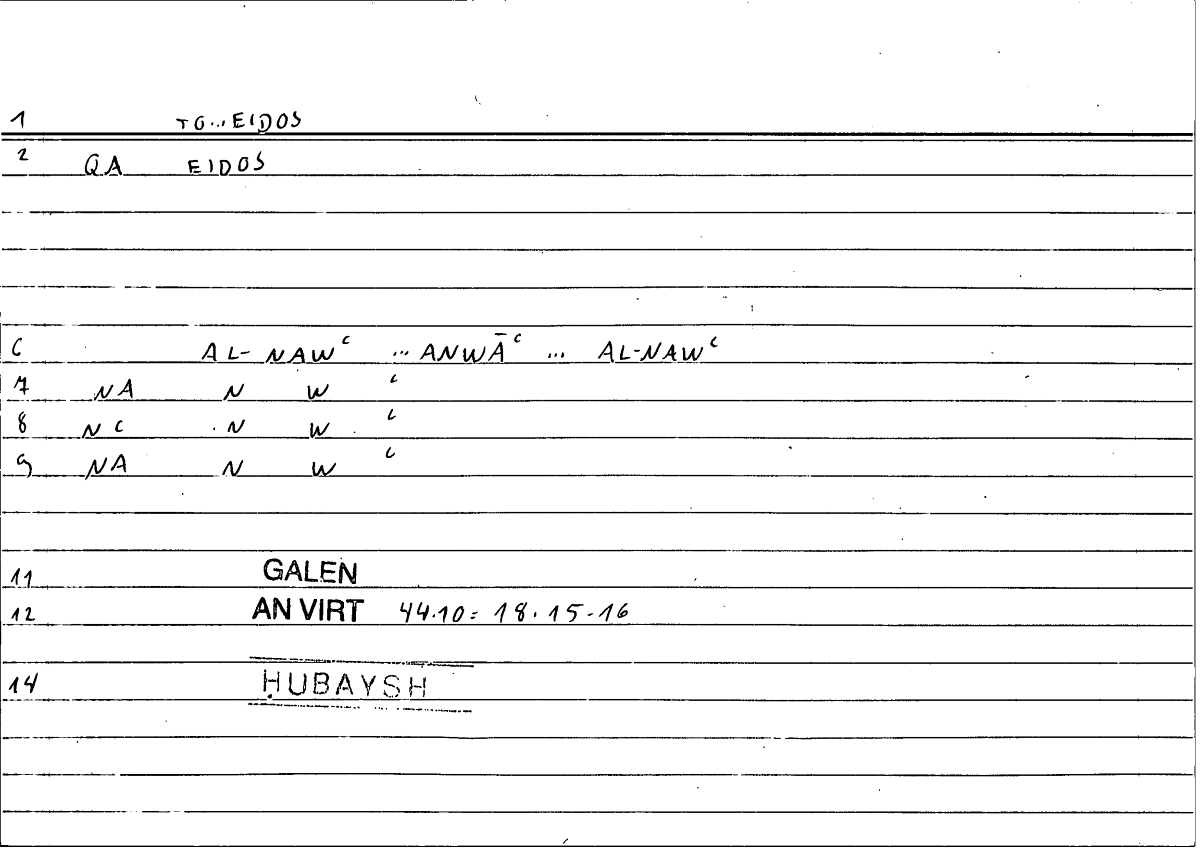 1 TO... EIDOS
2 QA EIDOS
6 AL-NAWʿ ... ANWĀʿ ... AL-NAWʿ
7 NA N W ʿ
8 NC N W ʿ
9 NA N W ʿ
11 GALEN
12 AN VIRT 44.10 = 18.15-16
14 ḤUBAYSH